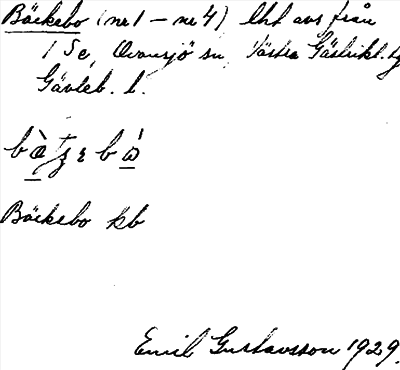 Bäckebo (nr 1 – nr 4) lht avs från
1 Se, Ovansjö sn, Västra Gästrikl. tg
Gävleb. l.
Bäckebo kb
Emil Gustavsson 1929.